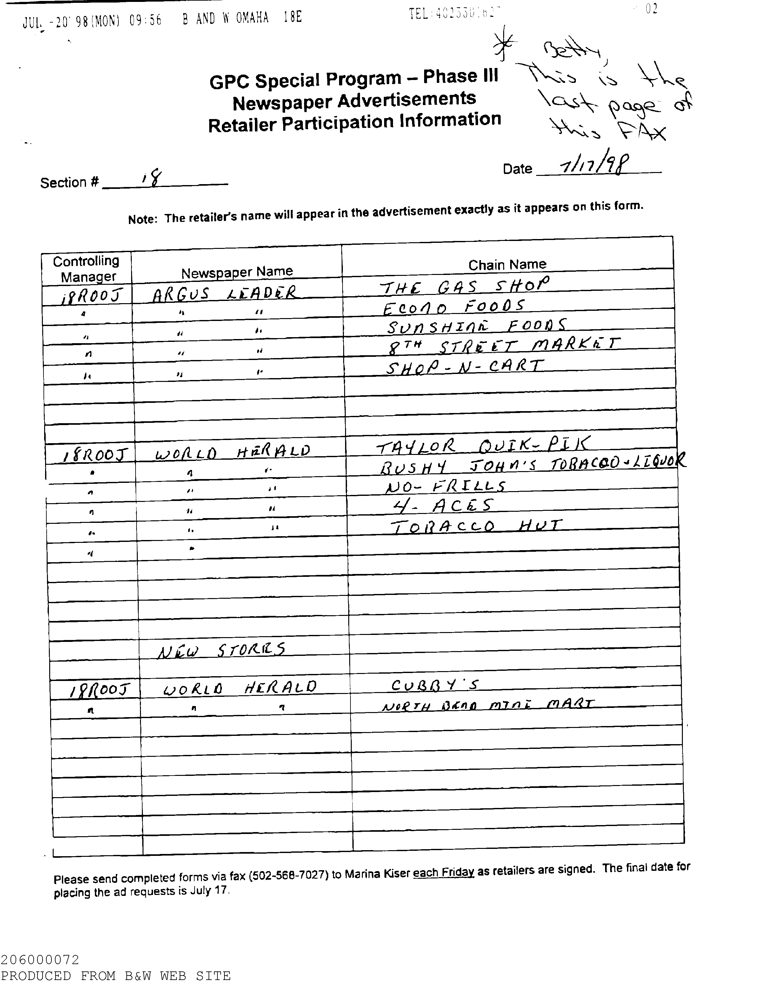 JUL -20' 98 (MON) 09:56 B AND W OMAHA 18E TEL: 02
* Betty,
This is the
last page of
this FAX
GPC Special Program – Phase III
Newspaper Advertisements
Retailer Participation Information
Section # 18 Date 7/17/98
Note: The retailer's name will appear in the advertisement exactly as it appears on this form.
Controlling Manager Newspaper Name Chain Name
18R00J ARGUS LEADER THE GAS SHOP
" " " ECONO FOODS
" " " SUNSHINE FOODS
" " " 8TH STREET MARKET
" " " SHOP-N-CART
18R00J WORLD HERALD TAYLOR QUIK-PIK
" " " BUSHY JOHN'S TOBACCO + LIQUOR
" " " NO-FRILLS
" " " 4-ACES
" " " TOBACCO HUT
" "
NEW STORES
18R00J WORLD HERALD CUBBY'S
" " " NORTH BEND MINI MART
Please send completed forms via fax (502-568-7027) to Marina Kiser each Friday as retailers are signed. The final date for
placing the ad requests is July 17.
206000072
PRODUCED FROM B&W WEB SITE